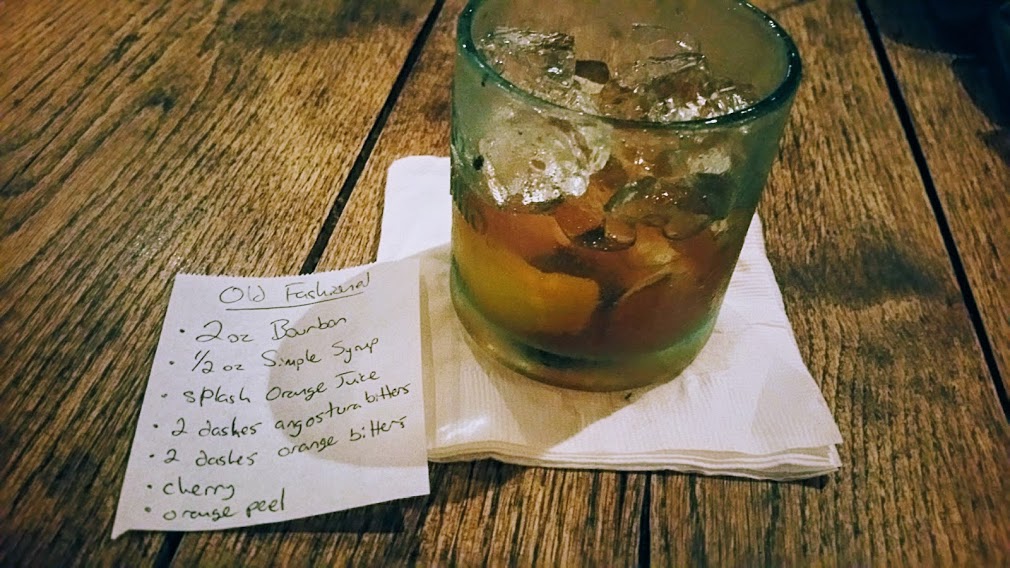 Old Fashioned
• 2 oz Bourbon
• 1/2 oz Simple Syrup
• splash Orange Juice
• 2 dashes angostura bitters
• 2 dashes orange bitters
• cherry
• orange peel